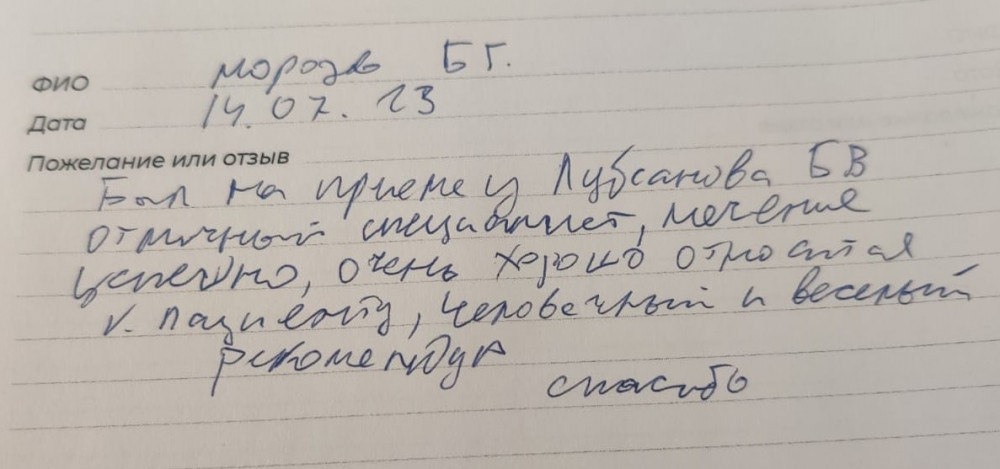 ФИО Мороз Б Г.
Дата 14.07.23
Пожелание или отзыв
Был на приеме у Лубсанова БВ
отличный специалист, лечение
успешно, очень хорошо относится
к пациенту, человечный и веселый
рекомендую
спасибо